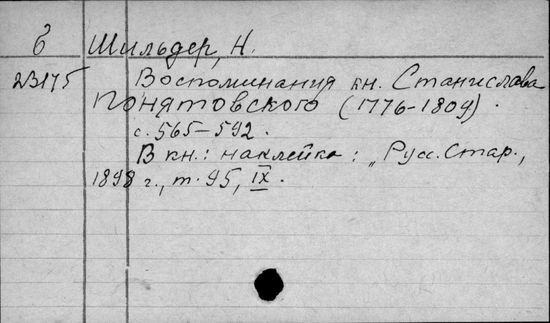 б Шильдер, Н.
23175 Воспоминания кн. Станислава
Понятовского (1776-1809).
с. 565-592.
В кн.: наклейка: „Русс. Стар.,
1898 г., т. 95, IX.